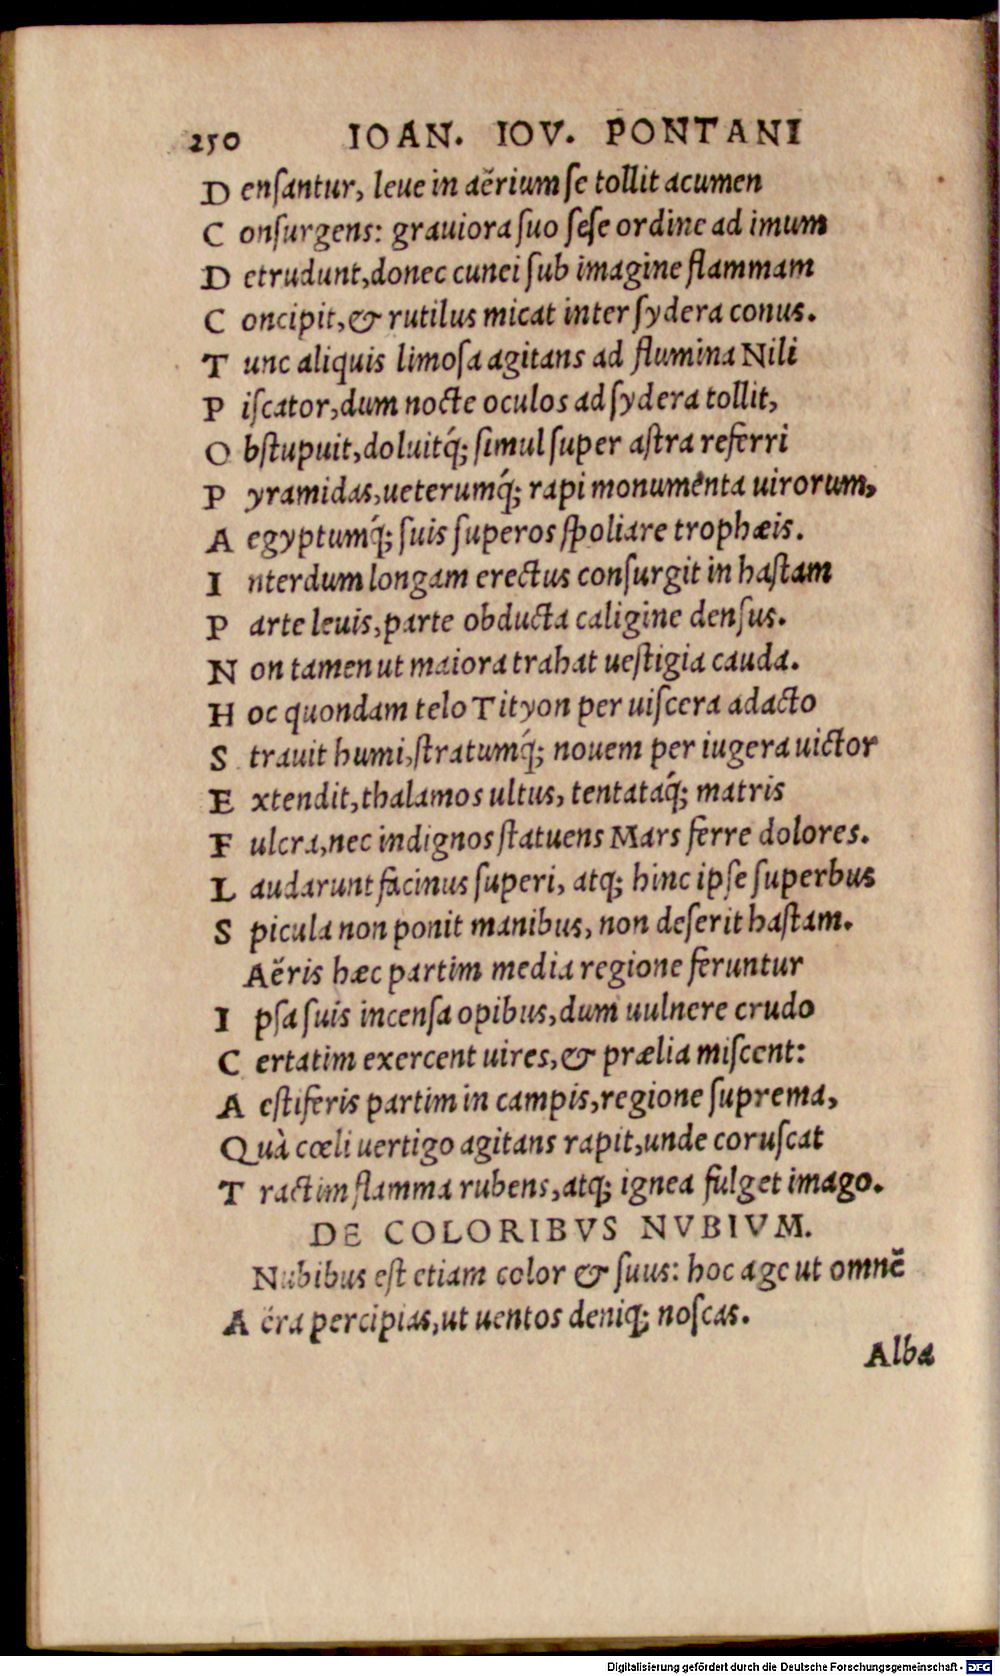 250 IOAN. IOV. PONTANI
D enſantur, leue in aërium ſe tollit acumen
C onſurgens: grauiora ſuo ſeſe ordine ad imum
D etrudunt, donec cunei ſub imagine flammam
C oncipit, & rutilus micat inter ſydera conus.
T unc aliquis limoſa agitans ad flumina Nili
P iſcator, dum nocte oculos ad ſydera tollit,
O bſtupuit, doluitq́; ſimul ſuper aſtra referri
P yramidas, ueterumq́; rapi monumenta uirorum,
A egyptumq́; ſuis ſuperos ſpoliare trophæis.
I nterdum longam erectus conſurgit in haſtam
P arte leuis, parte obducta caligine denſus.
N on tamen ut maiora trahat ueſtigia cauda.
H oc quondam telo Tityon per uiſcera adacto
S trauit humi, ſtratumq́; nouem per iugera uictor
E xtendit, thalamos ultus, tentataq́; matris
F ulcra, nec indignos ſtatuens Mars ferre dolores.
L audarunt facinus ſuperi, atq; hinc ipſe ſuperbus
S picula non ponit manibus, non deſerit haſtam.
Aëris hæc partim media regione feruntur
I pſa ſuis incenſa opibus, dum uulnere crudo
C ertatim exercent uires, & prælia miſcent:
A eſtiferis partim in campis, regione ſuprema,
Q uà cœli uertigo agitans rapit, unde coruſcat
T ractim flamma rubens, atq; ignea fulget imago.
DE COLORIBVS NVBIVM.
Nubibus eſt etiam color & ſuus: hoc age ut omnẽ
A ëra percipias, ut uentos deniq; noſcas.
Alba
Digitalisierung gefördert durch die Deutsche Forschungsgemeinschaft - DFG